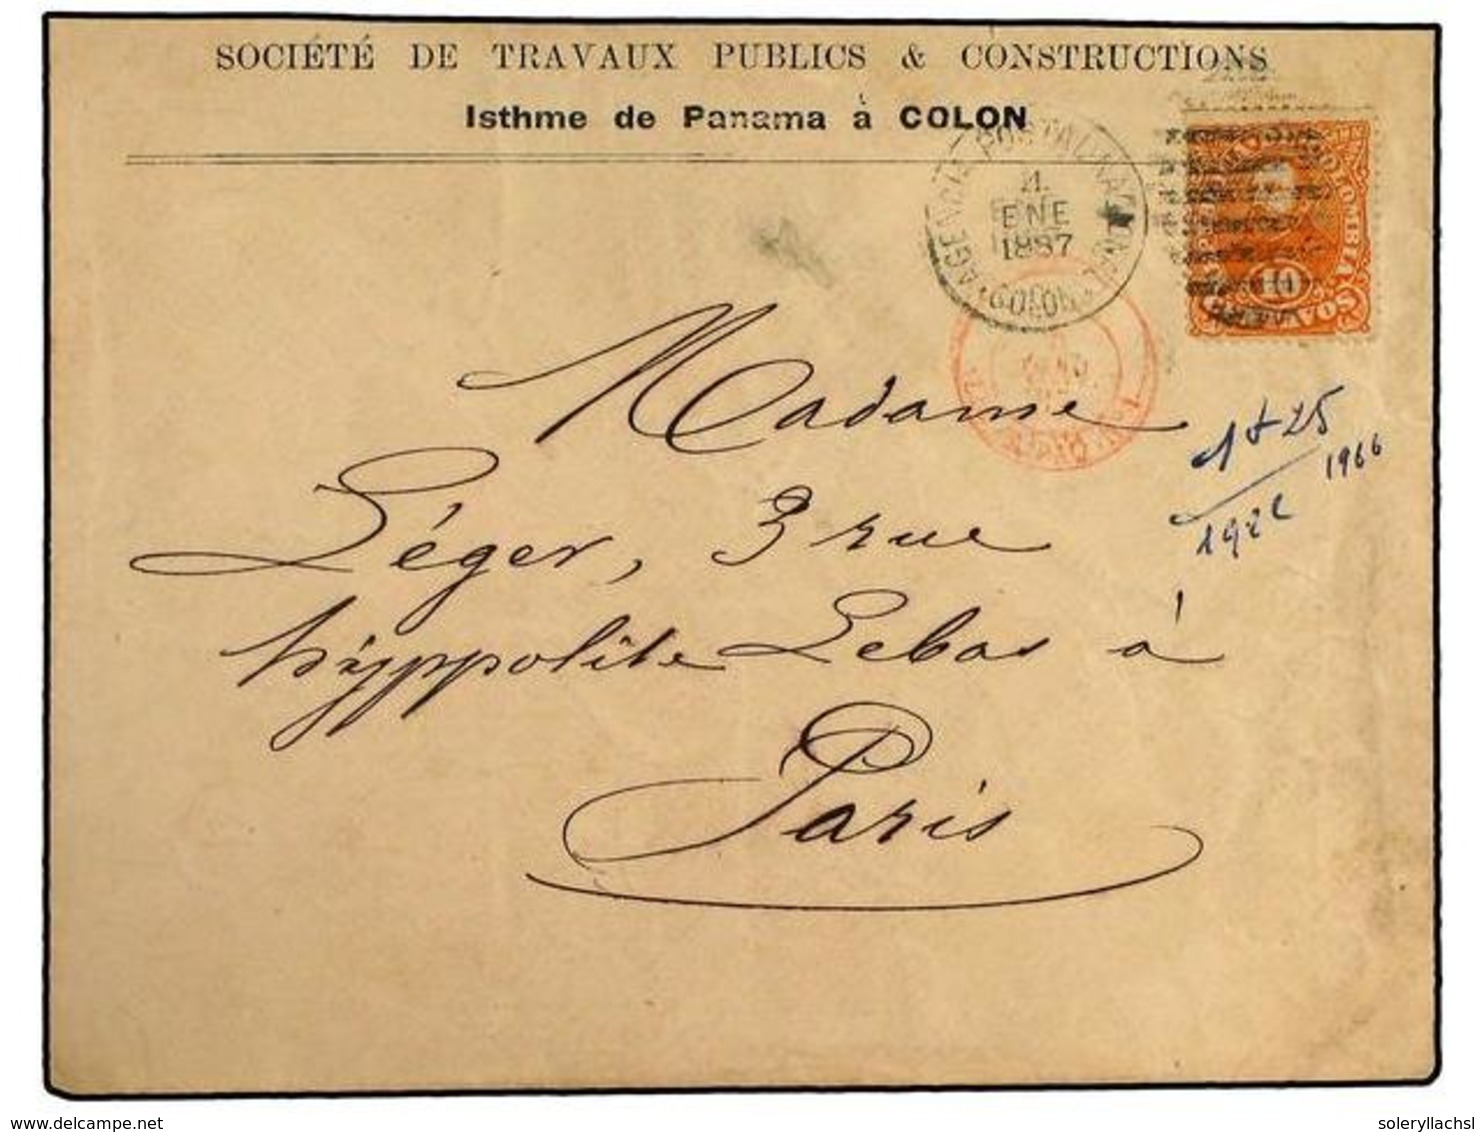 SOCIÉTÉ DE TRAVAUX PUBLICS & CONSTRUCTIONS
Isthme de Panama à COLON
AGENCIA POSTAL NACIONAL
4
ENE
1887
COLON
COLOMBIA
10
CENTAVOS
Madame
Léger, 3 rue
hyppolite Lebas à
Paris
1+25
1922
1966
soleryllachsl